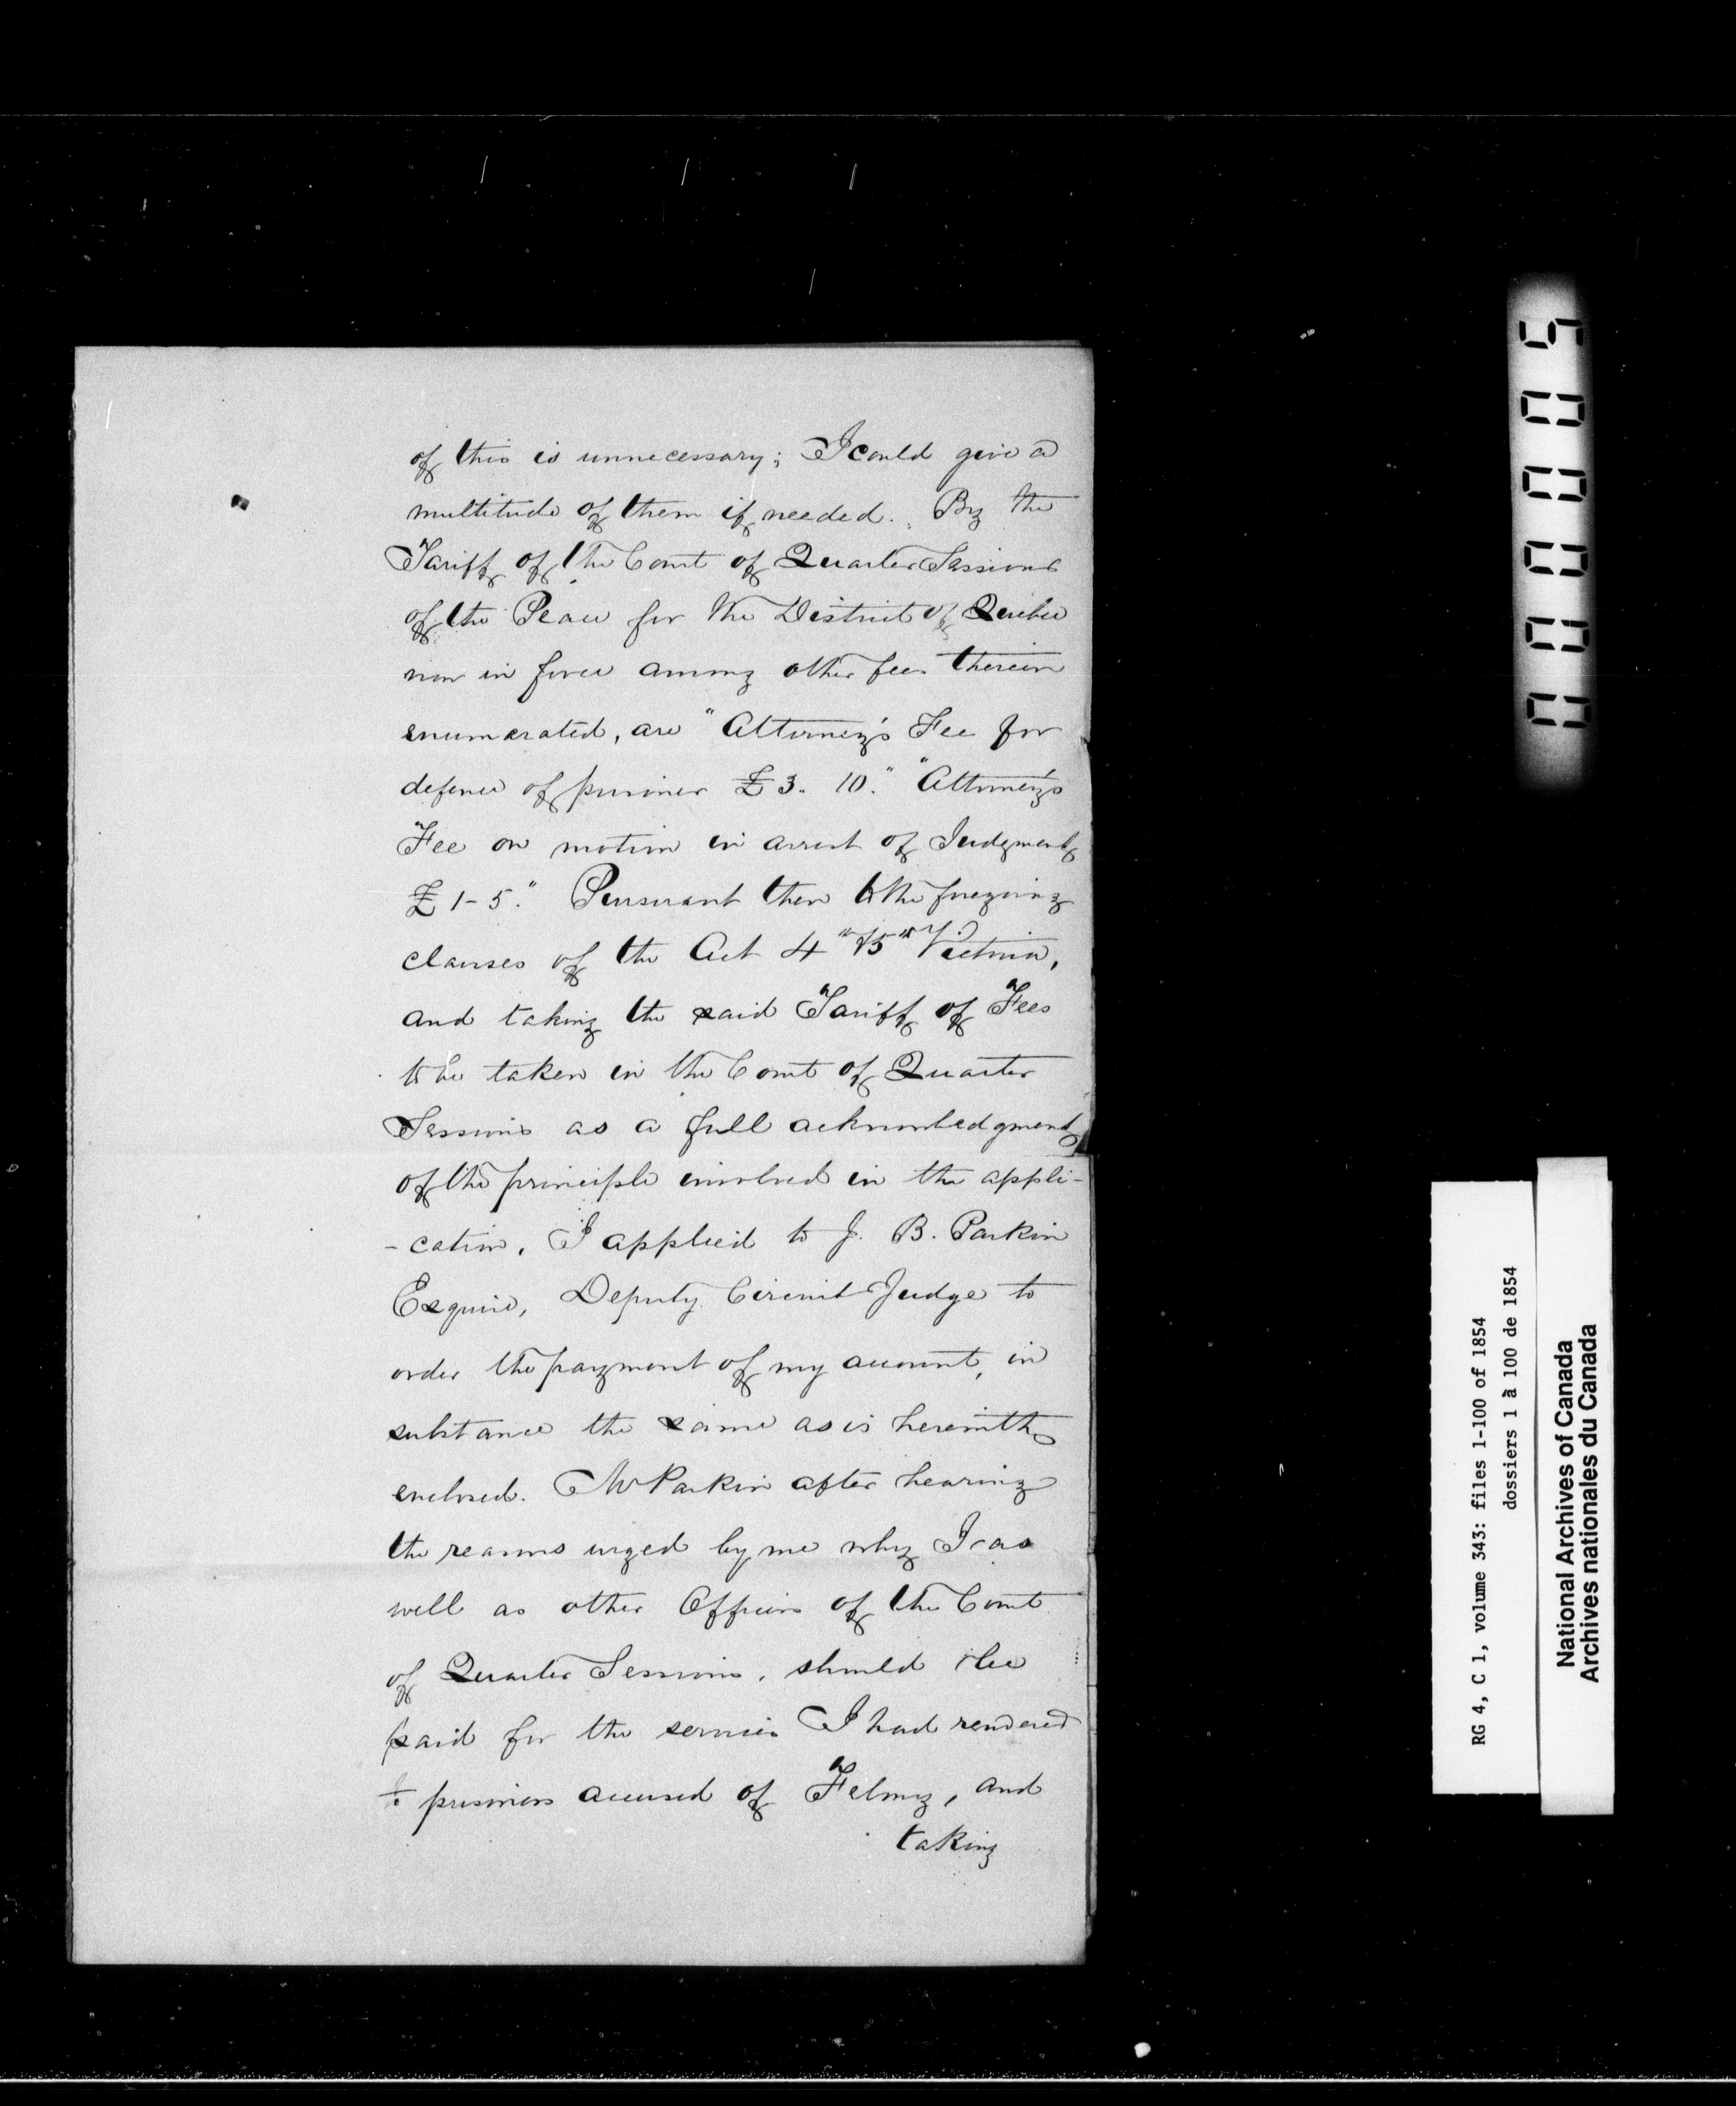 of this is unnecessary; I could give a
multitude of them if needed. By the
Tariff of the Court of Quarter Sessions
of the Peace for the District of Quebec
now in force among other fees therein
enumerated, are "Attorney's Fee for
defence of prisoner £3. 10." "Attorney's
Fee on motion in arrest of Judgment,
£1-5." Pursuant then to the foregoing
clauses of the Act 4th & 5th Victoria,
and taking the said Tariff of Fees
to be taken in the Court of Quarter
Sessions as a full acknowledgment
of the principle involved in the appli-
-cation, I applied to J. B. Parkin
Esquire, Deputy Circuit Judge to
order the payment of my account, in
substance the same as is herewith
enclosed. Mr Parkin after hearing
the reasons urged by me why I as
well as other Officers of the Court
of Quarter Sessions, should be
paid for the services I had rendered
to prisoners accused of Felony, and
taking
000005
RG 4, C 1, volume 343: files 1-100 of 1854
dossiers 1 à 100 de 1854
National Archives of Canada
Archives nationales du Canada